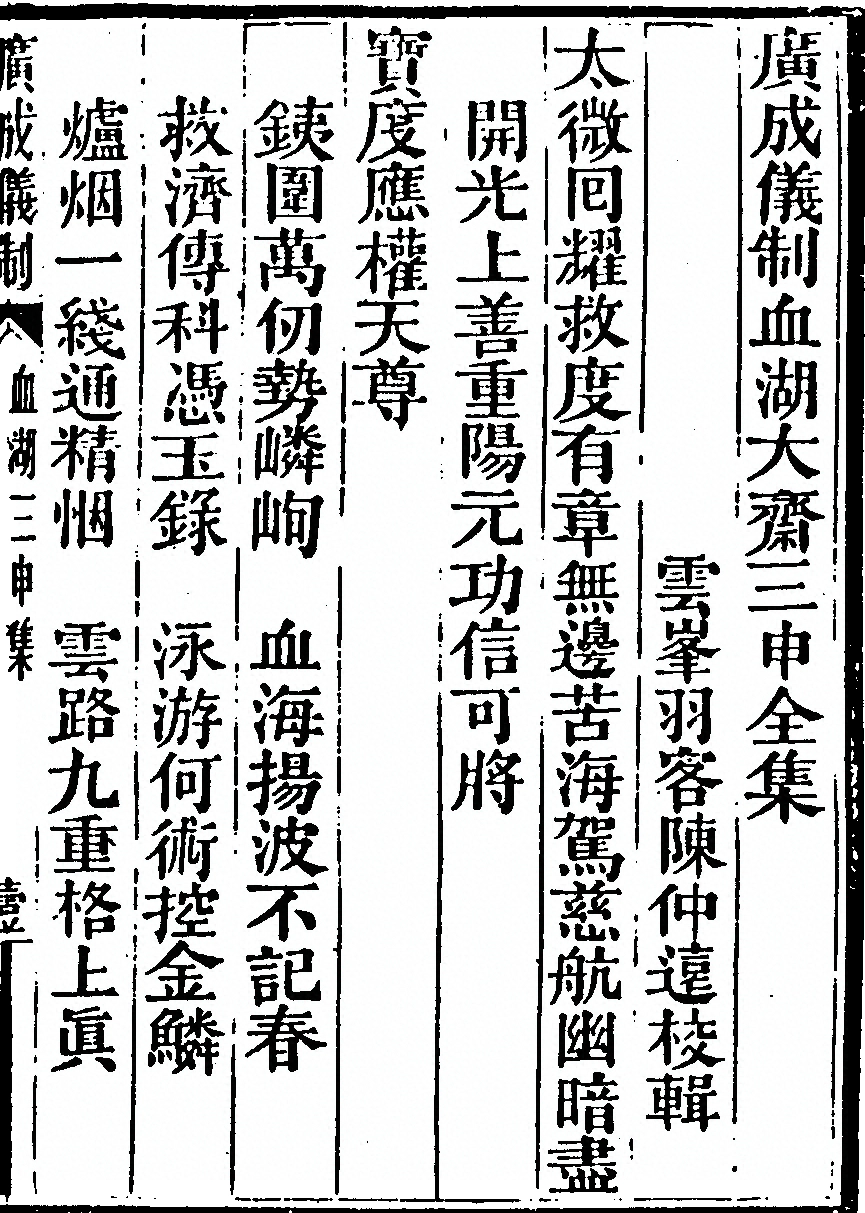 廣成儀制血湖大齋三申全集
雲峯羽客陳仲遠校輯
太微回耀救度有章無邊苦海駕慈航幽暗盡
開光上善重陽元功信可將
寶度應權天尊
銕圍萬仞勢嶙峋　血海揚波不記春
救濟傳科憑玉錄　泳游何術控金鱗
爐烟一綫通精悃　雲路九重格上眞
廣成儀制　血湖三申集　壹